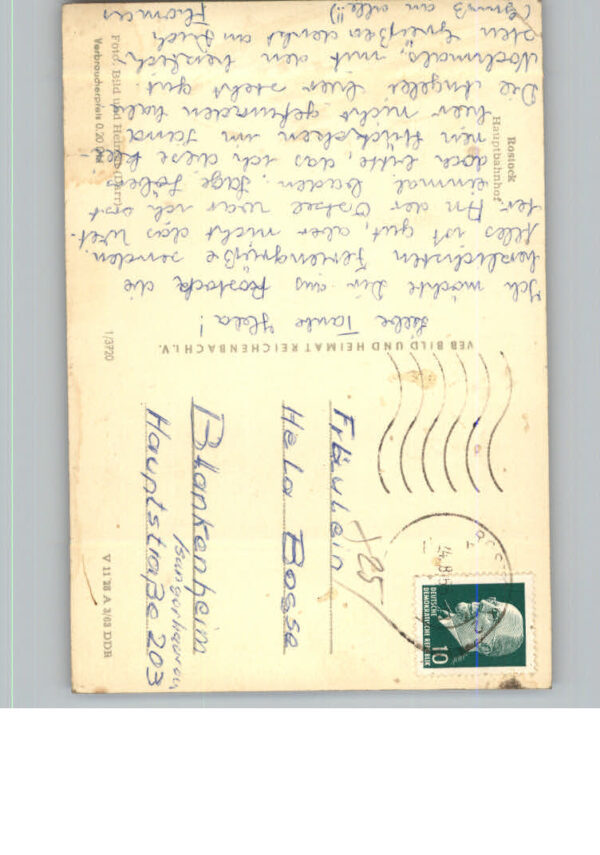 Rostock
Hauptbahnhof
Liebe Tante Hela!
Ich möchte Dir aus Rostock die
herzlichsten Feriengrüße senden.
Alles ist gut, aber nicht das Wet-
ter. An der Ostsee war ich erst
einmal baden. Sage
doch bitte, das ich diese
nen Stückchen im Sand
hier nicht gefunden habe.
Die Angelei hier steht gut.
Nochmals, mit den herzlich-
sten Grüßen denkt an Dich
Thomas
(Gruß an alle!!)
Foto: Bild und Heimat
Verbraucherpreis 0,20 DM
1/3720
VEB BILD UND HEIMAT REICHENBACH I. V.
V 11 28 A 3/63 DDR
10
DEUTSCHE
DEMOKRATISCHE REPUBLIK
Fräulein
Hela Bosse
Blankenheim
Hauptstraße 203